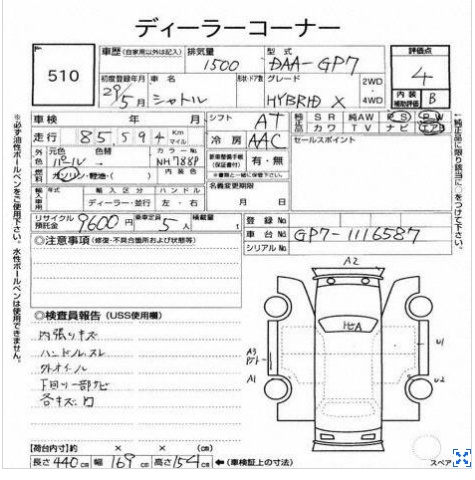 ディーラーコーナー
510
車歴 (自家用以外は記入) 排気量 1500 型式 DAA-GP7
評価点 4
初度登録年月 29/5月 車名 シャトル 形状・ドア数 グレード HYBRID X 2WD・4WD
内装補助評価 B
車検 年 月 シフト AT 純正品 SR 純AW PS PW
カワ TV ナビ エアB
走行 85,594 Km マイル 冷房 AAC セールスポイント
外色 元色 パール 色替 カラーNo. NH788P 内装色
新車整備手帳(保証書付) 有・無
※書類と一緒に保管下さい。
燃料 ガソリン・軽油・( )
名義変更期限 月 日
輸入車用 年式 輸入区分 ディーラー・並行 ハンドル 左・右
リサイクル預託金 9600円 乗車定員 5人 積載量
登録No.
車台No. GP7-1116587
シリアルNo.
◎注意事項 (修復・不具合箇所および状態等)
※必ず油性ボールペンをご使用下さい。水性ボールペンは使用できません。
↑純正品に限り該当に○をつけて下さい。
◎検査員報告 (USS使用欄)
内張りキズ
ハンドルスレ
下回り一部サビ
A2
A3
A1
U1
U2
【荷台内寸】約 × × (cm)
長さ 440 cm 幅 169 cm 高さ 154 cm ←(車検証上の寸法)
スペア